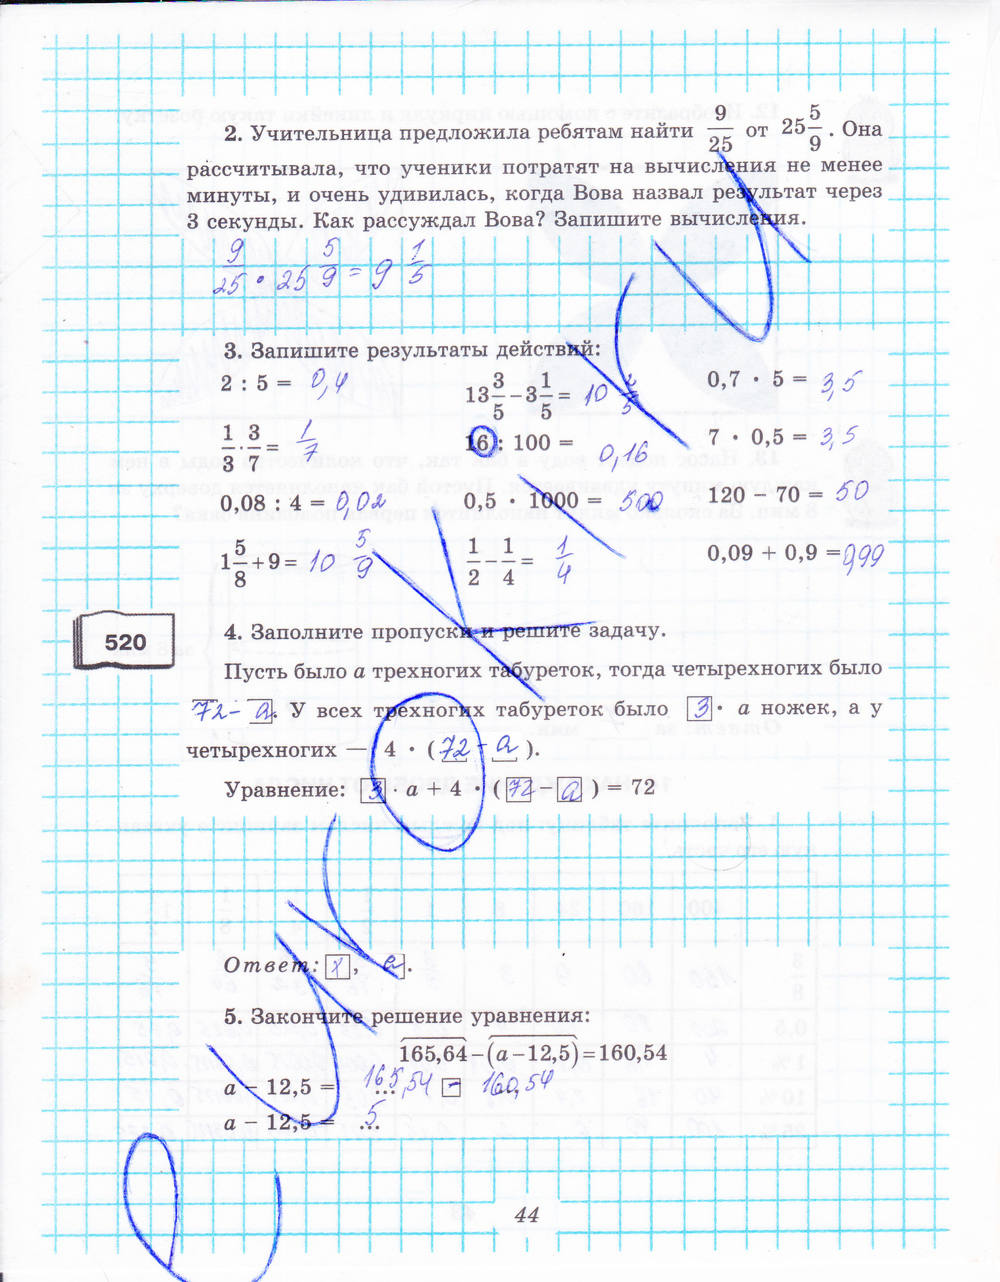 2. Учительница предложила ребятам найти 9/25 от 25 5/9. Она
рассчитывала, что ученики потратят на вычисления не менее
минуты, и очень удивилась, когда Вова назвал результат через
3 секунды. Как рассуждал Вова? Запишите вычисления.
9/25 · 25 5/9 = 9 1/5
3. Запишите результаты действий:
2 : 5 = 0,4 13 3/5 − 3 1/5 = 10 2/5 0,7 · 5 = 3,5
1/3 · 3/7 = 1/7 16 : 100 = 0,16 7 · 0,5 = 3,5
0,08 : 4 = 0,02 0,5 · 1000 = 500 120 − 70 = 50
1 5/8 + 9 = 10 5/9 1/2 − 1/4 = 1/4 0,09 + 0,9 = 0,99
520
4. Заполните пропуски и решите задачу.
Пусть было a трехногих табуреток, тогда четырехногих было
72 − a. У всех трехногих табуреток было 3 · a ножек, а у
четырехногих — 4 · (72 − a).
Уравнение: 3 · a + 4 · (72 − a) = 72
Ответ: x, a.
5. Закончите решение уравнения:
165,64 − (a − 12,5) = 160,54
a − 12,5 = 165,54 − 160,54
a − 12,5 = 5
44